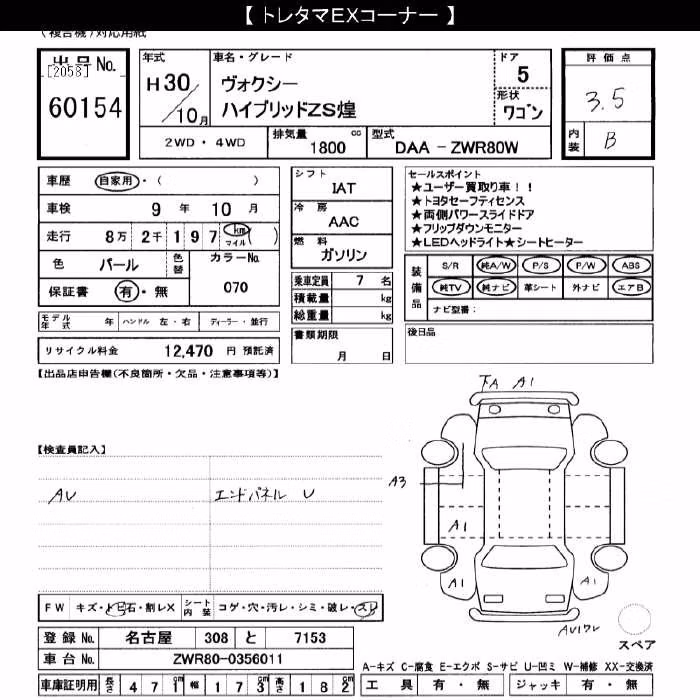 【 トレタマEXコーナー 】
(複合機)対応用紙
出品No.
[2058]
60154
年式
H30/10月
車名・グレード
ヴォクシー
ハイブリッドZS煌
ドア
5
形状
ワゴン
2WD・4WD
排気量
1800 cc
型式
DAA - ZWR80W
評価点
3.5
内装
B
車歴 自家用・( )
車検 9年 10月
走行 8万 2千 1 9 7 km マイル ( )
色 パール 色替 カラーNo.
保証書 有・無 070
モデル年式 年 ハンドル 左・右 ディーラー・並行
リサイクル料金 12,470 円 預託済
シフト
IAT
冷房
AAC
燃料
ガソリン
乗車定員 7 名
積載量 kg
総重量 kg
書類期限
月 日
セールスポイント
★ユーザー買取り車!!
★トヨタセーフティセンス
★両側パワースライドドア
★フリップダウンモニター
★LEDヘッドライト★シートヒーター
装備品
S/R 純A/W P/S P/W ABS
純TV 純ナビ 革シート 外ナビ エアB
ナビ型番:
後日品
【出品店申告欄(不良箇所・欠品・注意事項等)】
【検査員記入】
AU エンドパネル U
下A A1
A3
A1
A1 A1
AUワレ
スペア
FW キズ・トビ石・割レX シート内装 コゲ・穴・汚レ・シミ・破レ・スレ
登録No. 名古屋 308 と 7153
車台No. ZWR80-0356011
車庫証明用 長さ 471cm 幅 173cm 高さ 182cm
A-キズ C-腐食 E-エクボ S-サビ U-凹ミ W-補修 XX-交換済
工具 有・無 ジャッキ 有・無